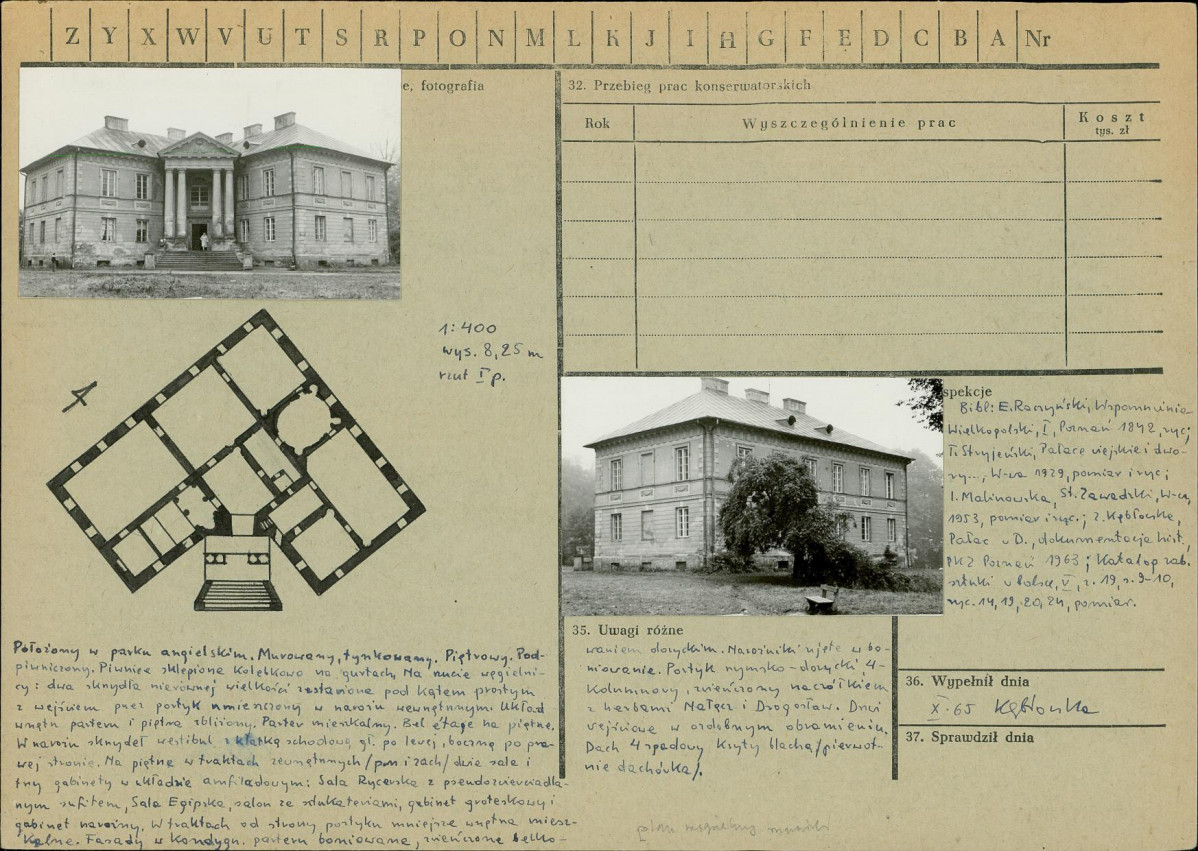 Z Y X W V U T S R P O N M L K J I H G F E D C B A Nr
e, fotografia
32. Przebieg prac konserwatorskich
Rok
Wyszczególnienie prac
Koszt
tys. zł
1:400
wys. 8,25 m
rzut I p.
spekcje
Bibl: E. Raczyński, Wspomnienia
Wielkopolski, I, Poznań 1842, ryc;
T. Stryjeński, Pałace wiejskie i dwo-
ry..., W-wa 1929, pomiar i ryc;
I. Malinowska, St. Zawadzki, W-wa,
1953, pomiar i ryc.; Z. Kębłowska,
Pałac w D., dokumentacja hist.,
PKZ Poznań 1963; Katalog zab.
sztuki w Polsce, V, z. 19, s. 9-10,
ryc. 14, 19, 20, 24, pomiar.
Położony w parku angielskim. Murowany, tynkowany. Piętrowy. Pod-
piwniczony. Piwnice sklepione kolebkowo na gurtach. Na rzucie węgielni-
cy: dwa skrzydła nierównej wielkości zestawione pod kątem prostym
z wejściem przez portyk umieszczony w narożu wewnętrznym. Układ
wnętrz parteru i piętra zbliżony. Parter mieszkalny. Bel etage na piętrze.
W narożu skrzydeł westibul z klatką schodową gł. po lewej, boczną po pra-
wej stronie. Na piętrze w traktach zewnętrznych /pn i zach/ dwie sale i
trzy gabinety w układzie amfiladowym: Sala Rycerska z pseudozwierciadla-
nym sufitem, Sala Egipska, salon ze sztukateriami, gabinet groteskowy i
gabinet narożny. W traktach od strony portyku mniejsze wnętrza miesz-
kalne. Fasady w kondygn. parteru boniowane, zwieńczone belko-
35. Uwagi różne
waniem doryckim. Narożniki ujęte w bo-
niowanie. Portyk rzymsko-dorycki, 4-
kolumnowy, zwieńczony naczółkiem
z herbami Nałęcz i Drogosław. Drzwi
wejściowe w ozdobnym obramieniu.
Dach 4 spadowy kryty blachą /pierwot-
nie dachówką/.
36. Wypełnił dnia
X. 65 Kębłowska
37. Sprawdził dnia